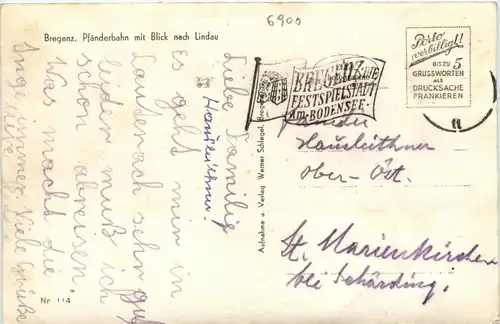 6900
Bregenz, Pfänderbahn mit Blick nach Lindau
Porto
verbilligt!
BIS ZU 5
GRUSSWORTEN
ALS
DRUCKSACHE
FRANKIEREN
BREGENZ
FESTSPIELSTADT
AM-BODENSEE-
Liebe Familie
Hausleithner!
Es geht mir in
Lautenach sehr gut
leider muß ich
schon abreisen.
Was macht die
Inge immer. Viele Grüße
Aufnahme u. Verlag Werner Schlegel, Bregenz
Familie
Hausleithner
Ober-Öst.
St. Marienkirchen
bei Schärding.
Nr. 114